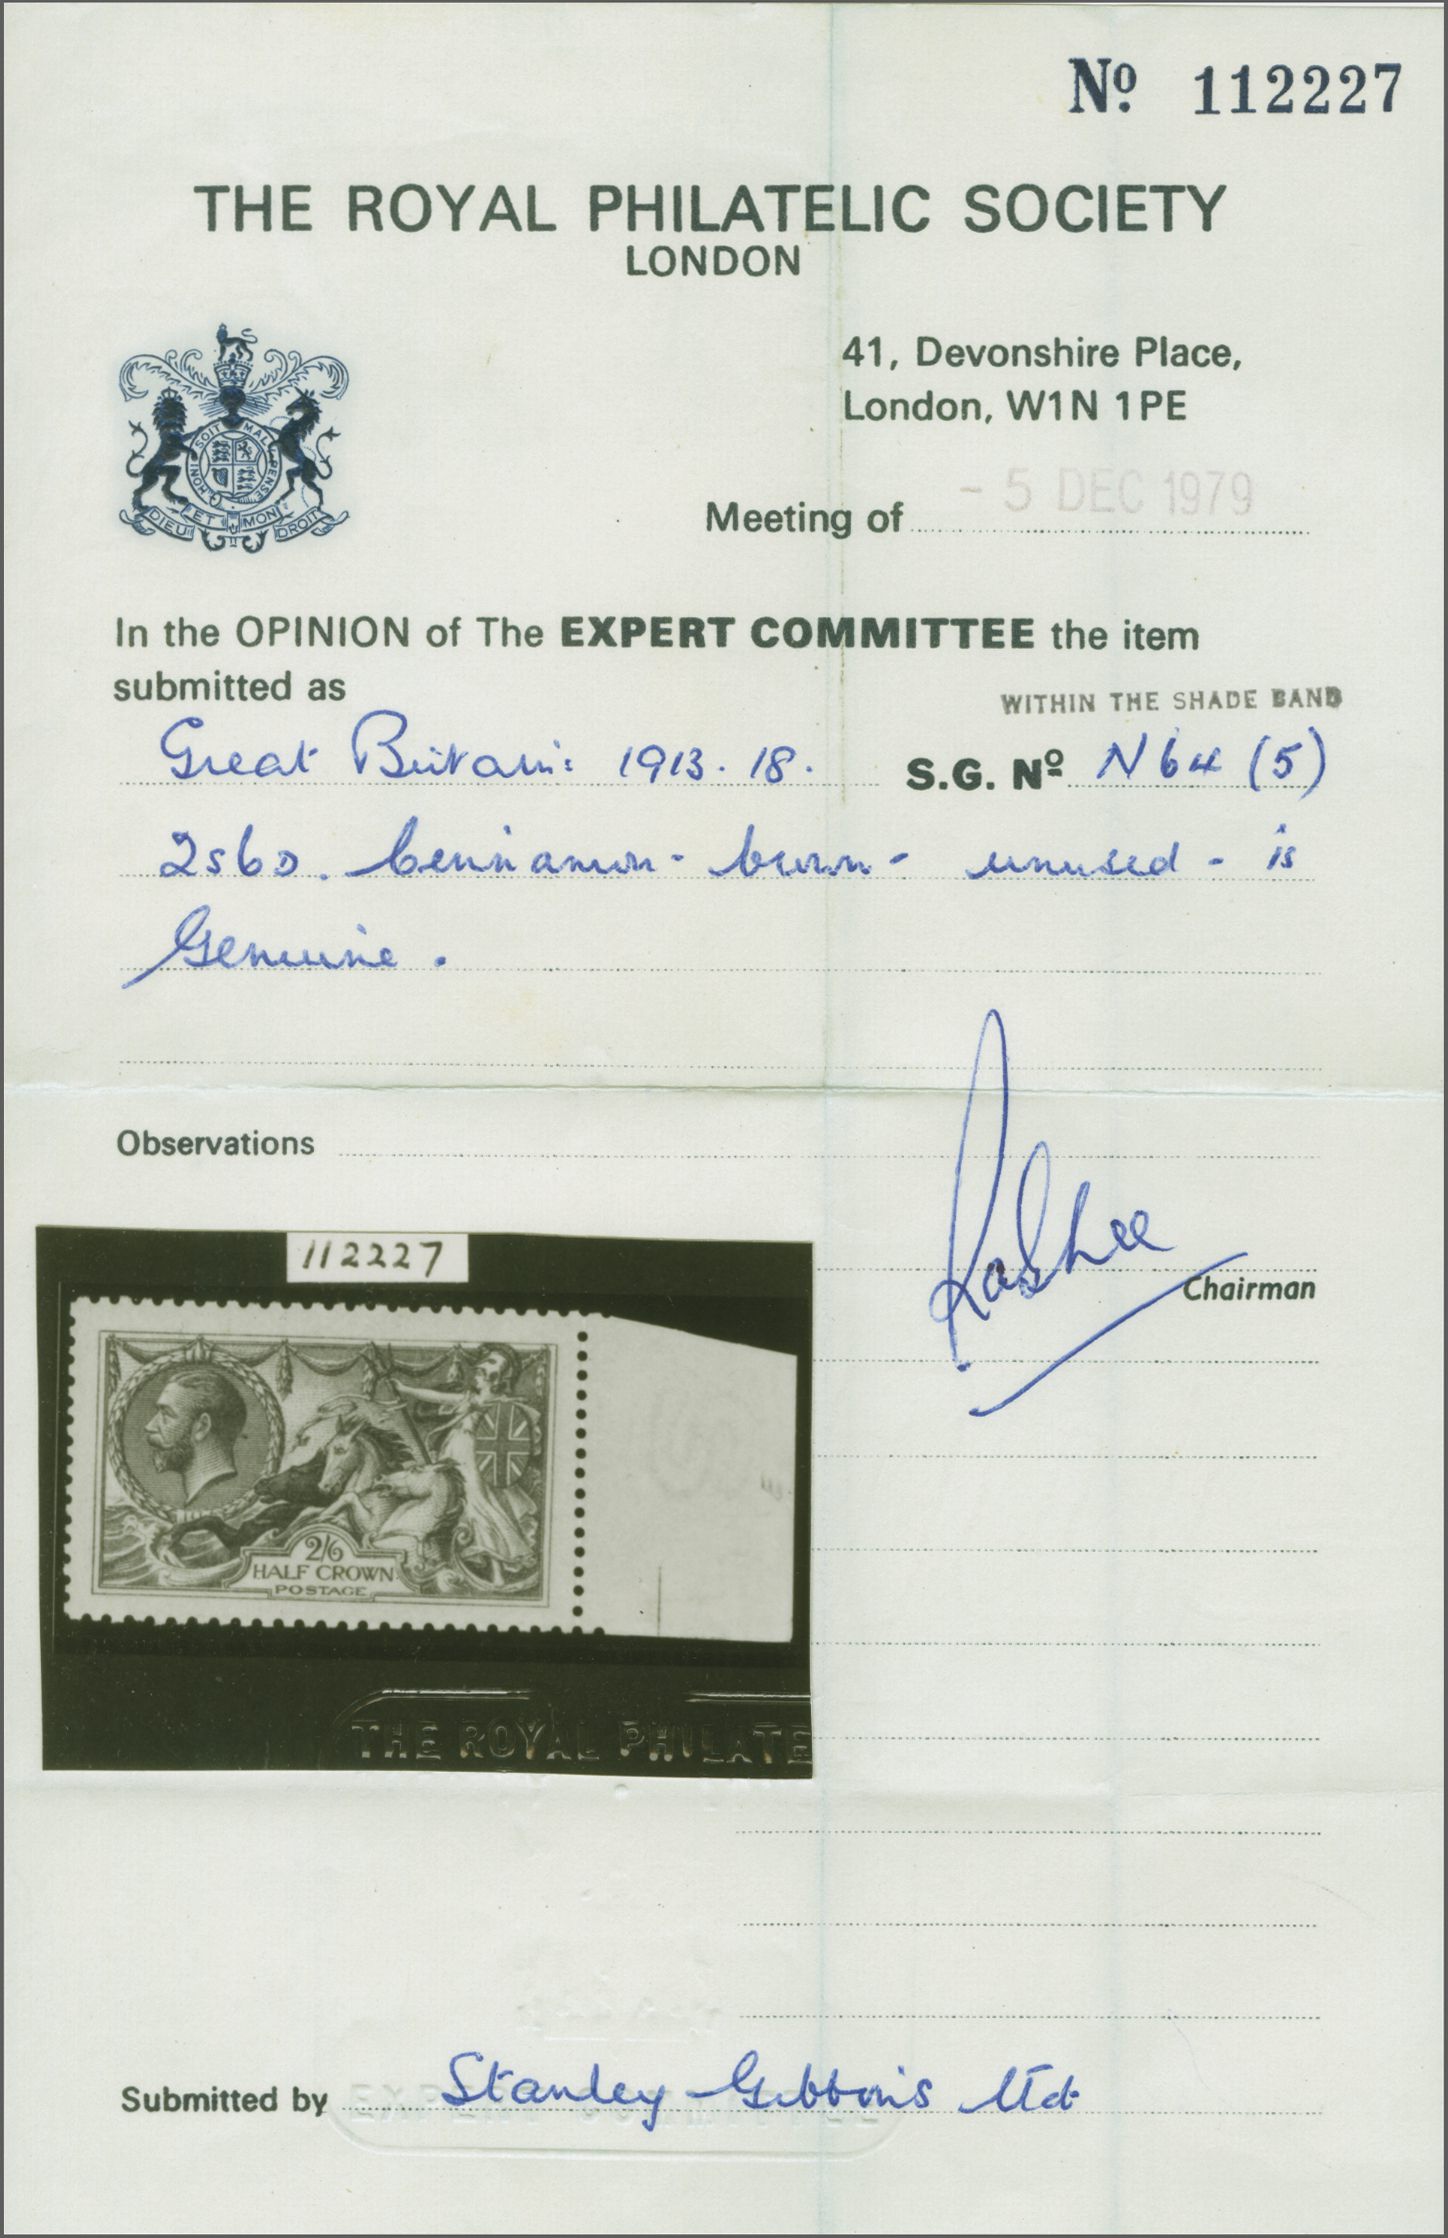 No. 112227
THE ROYAL PHILATELIC SOCIETY
LONDON
41, Devonshire Place,
London, W1N 1PE
SOIT MAL PENSE HONI
DIEU ET MON DROIT
Meeting of - 5 DEC 1979
In the OPINION of The EXPERT COMMITTEE the item
submitted as
WITHIN THE SHADE BAND
Great Britain: 1913-18. S.G. No N64 (5)
2s6D. Cinnamon-brown - unused - is
Genuine.
Observations
Chairman
112227
2/6
HALF CROWN
POSTAGE
THE ROYAL PHILATE
Submitted by Stanley Gibbons Ltd
EXPERT COMMITTEE